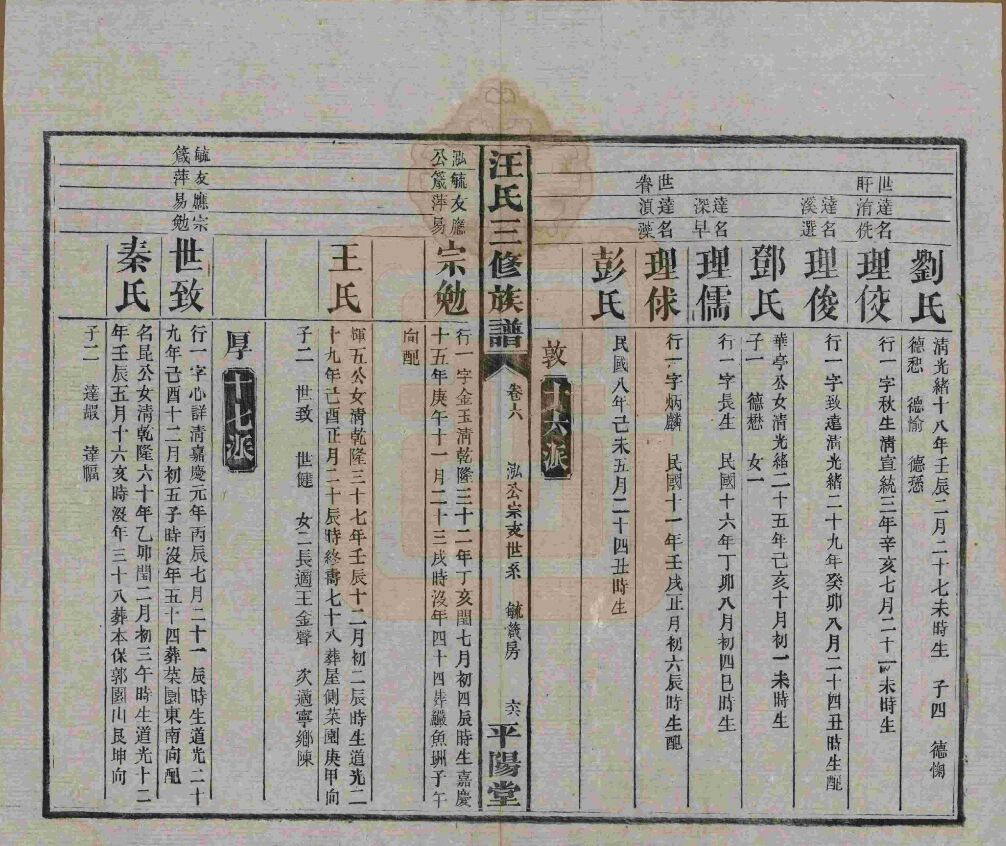 劉氏
清光緒十八年壬辰二月二十七未時生 子四 德惆
德恕 德愉 德慿
世達名
肝淯侁
理佼
行一字秋生清宣統三年辛亥七月二十一未時生
達名
溪選
理俊
行一字致遠清光緒二十九年癸卯八月二十四丑時生配
鄧氏
華亭公女清光緒二十五年己亥十月初一未時生
子一 德懋 女一
達名
深早
理儒
行一字長生 民國十六年丁卯八月初四巳時生
世達名
眷滇藻
理俅
行一字炳麟 民國十一年壬戌正月初六辰時生配
彭氏
民國八年己未五月二十四丑時生
敦 十六派
汪氏三修族譜 卷六 泓公宗支世系 毓箴房 六 平陽堂
泓毓友應
公箴萍易
宗勉
行一字金玉清乾隆三十二年丁亥閏七月初四辰時生嘉慶
十五年庚午十一月二十三戌時沒年四十四葬繼魚洲子午
向配
王氏
輝五公女清乾隆三十七年壬辰十二月初二辰時生道光二
十九年己酉正月二十辰時終壽七十八葬屋側菜園庚甲向
子二 世致 世健 女二長適王金聲 次適寧鄉陳
厚 十七派
毓友應宗
箴萍易勉
世致
行一字心詳清嘉慶元年丙辰七月二十一辰時生道光二十
九年己酉十二月初五子時沒年五十四葬菜園東南向配
秦氏
名昆公女清乾隆六十年乙卯閏二月初三午時生道光十二
年壬辰五月十六亥時沒年三十八葬本保郭園山艮坤向
子二 達嘏 達幅